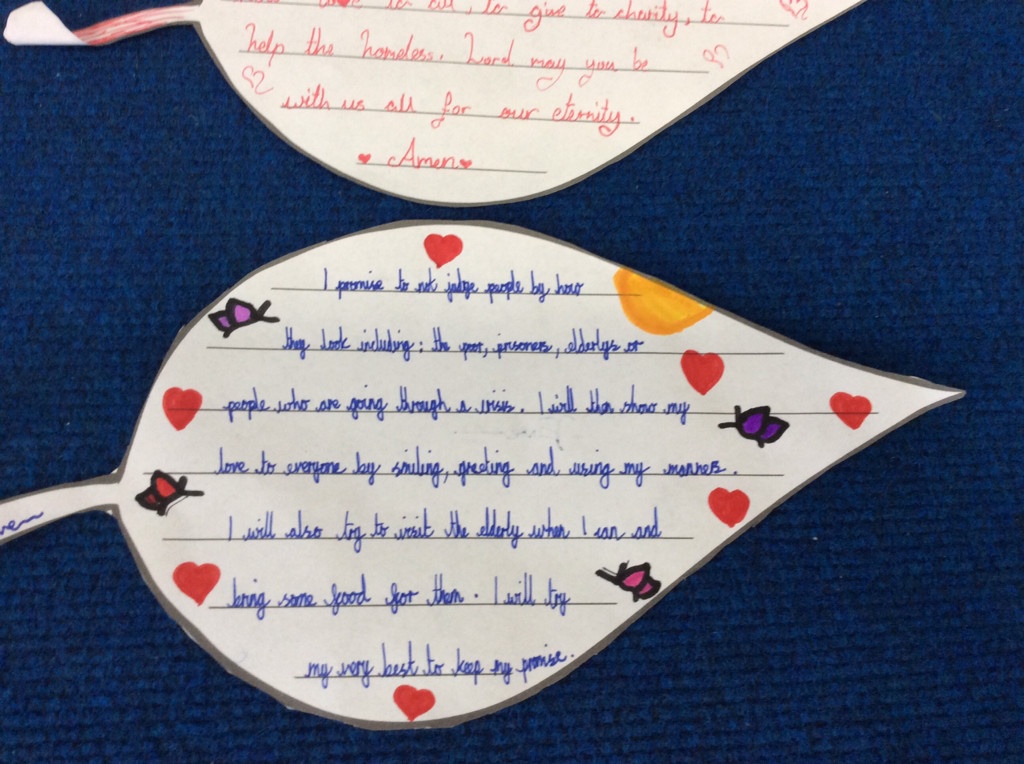 love to all, to give to charity, to
help the homeless. Lord may you be
with us all for our eternity.
Amen
I promise to not judge people by how
they look including: the poor, prisoners, elderlys or
people who are going through a crisis. I will then show my
love to everyone by smiling, greeting and using my manners.
I will also try to visit the elderly when I can and
bring some food for them. I will try
my very best to keep my promise.